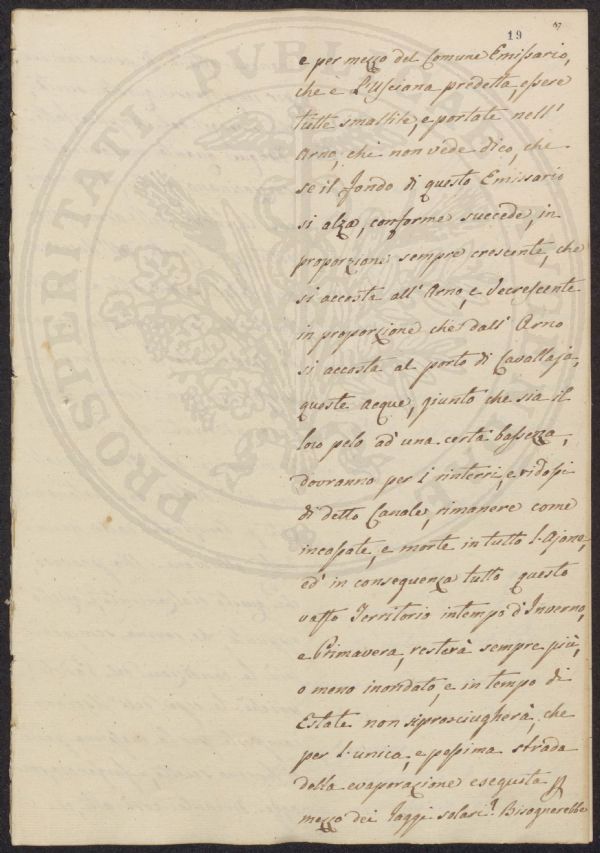 19
67
e per mezzo del Comune Emissario,
che è l'Usciana predetta, essere
tutte smaltite, e portate nell'
Arno, chi non vede dico, che
se il fondo di questo Emissario
si alza, conforme succede, in
proporzione sempre crescente, che
si accosta all'Arno, e decrescente
in proporzione che dall'Arno
si accosta al porto di Cavallaja,
queste acque, giunto che sia il
loro pelo ad una certa bassezza,
dovranno per i rinterri, e ridossi
di detto Canale, rimanere come
incassate, e morte in tutto l'Ajone,
ed in conseguenza tutto questo
vasto Territorio in tempo d'Inverno,
e Primavera, resterà sempre più,
o meno inondato, e in tempo di
Estate non si prosciugherà, che
per l'unica, e pessima strada
della evaporazione eseguita p
mezzo dei Raggi solari. Bisognerebbe
PROSPERITATI PUBLICAE